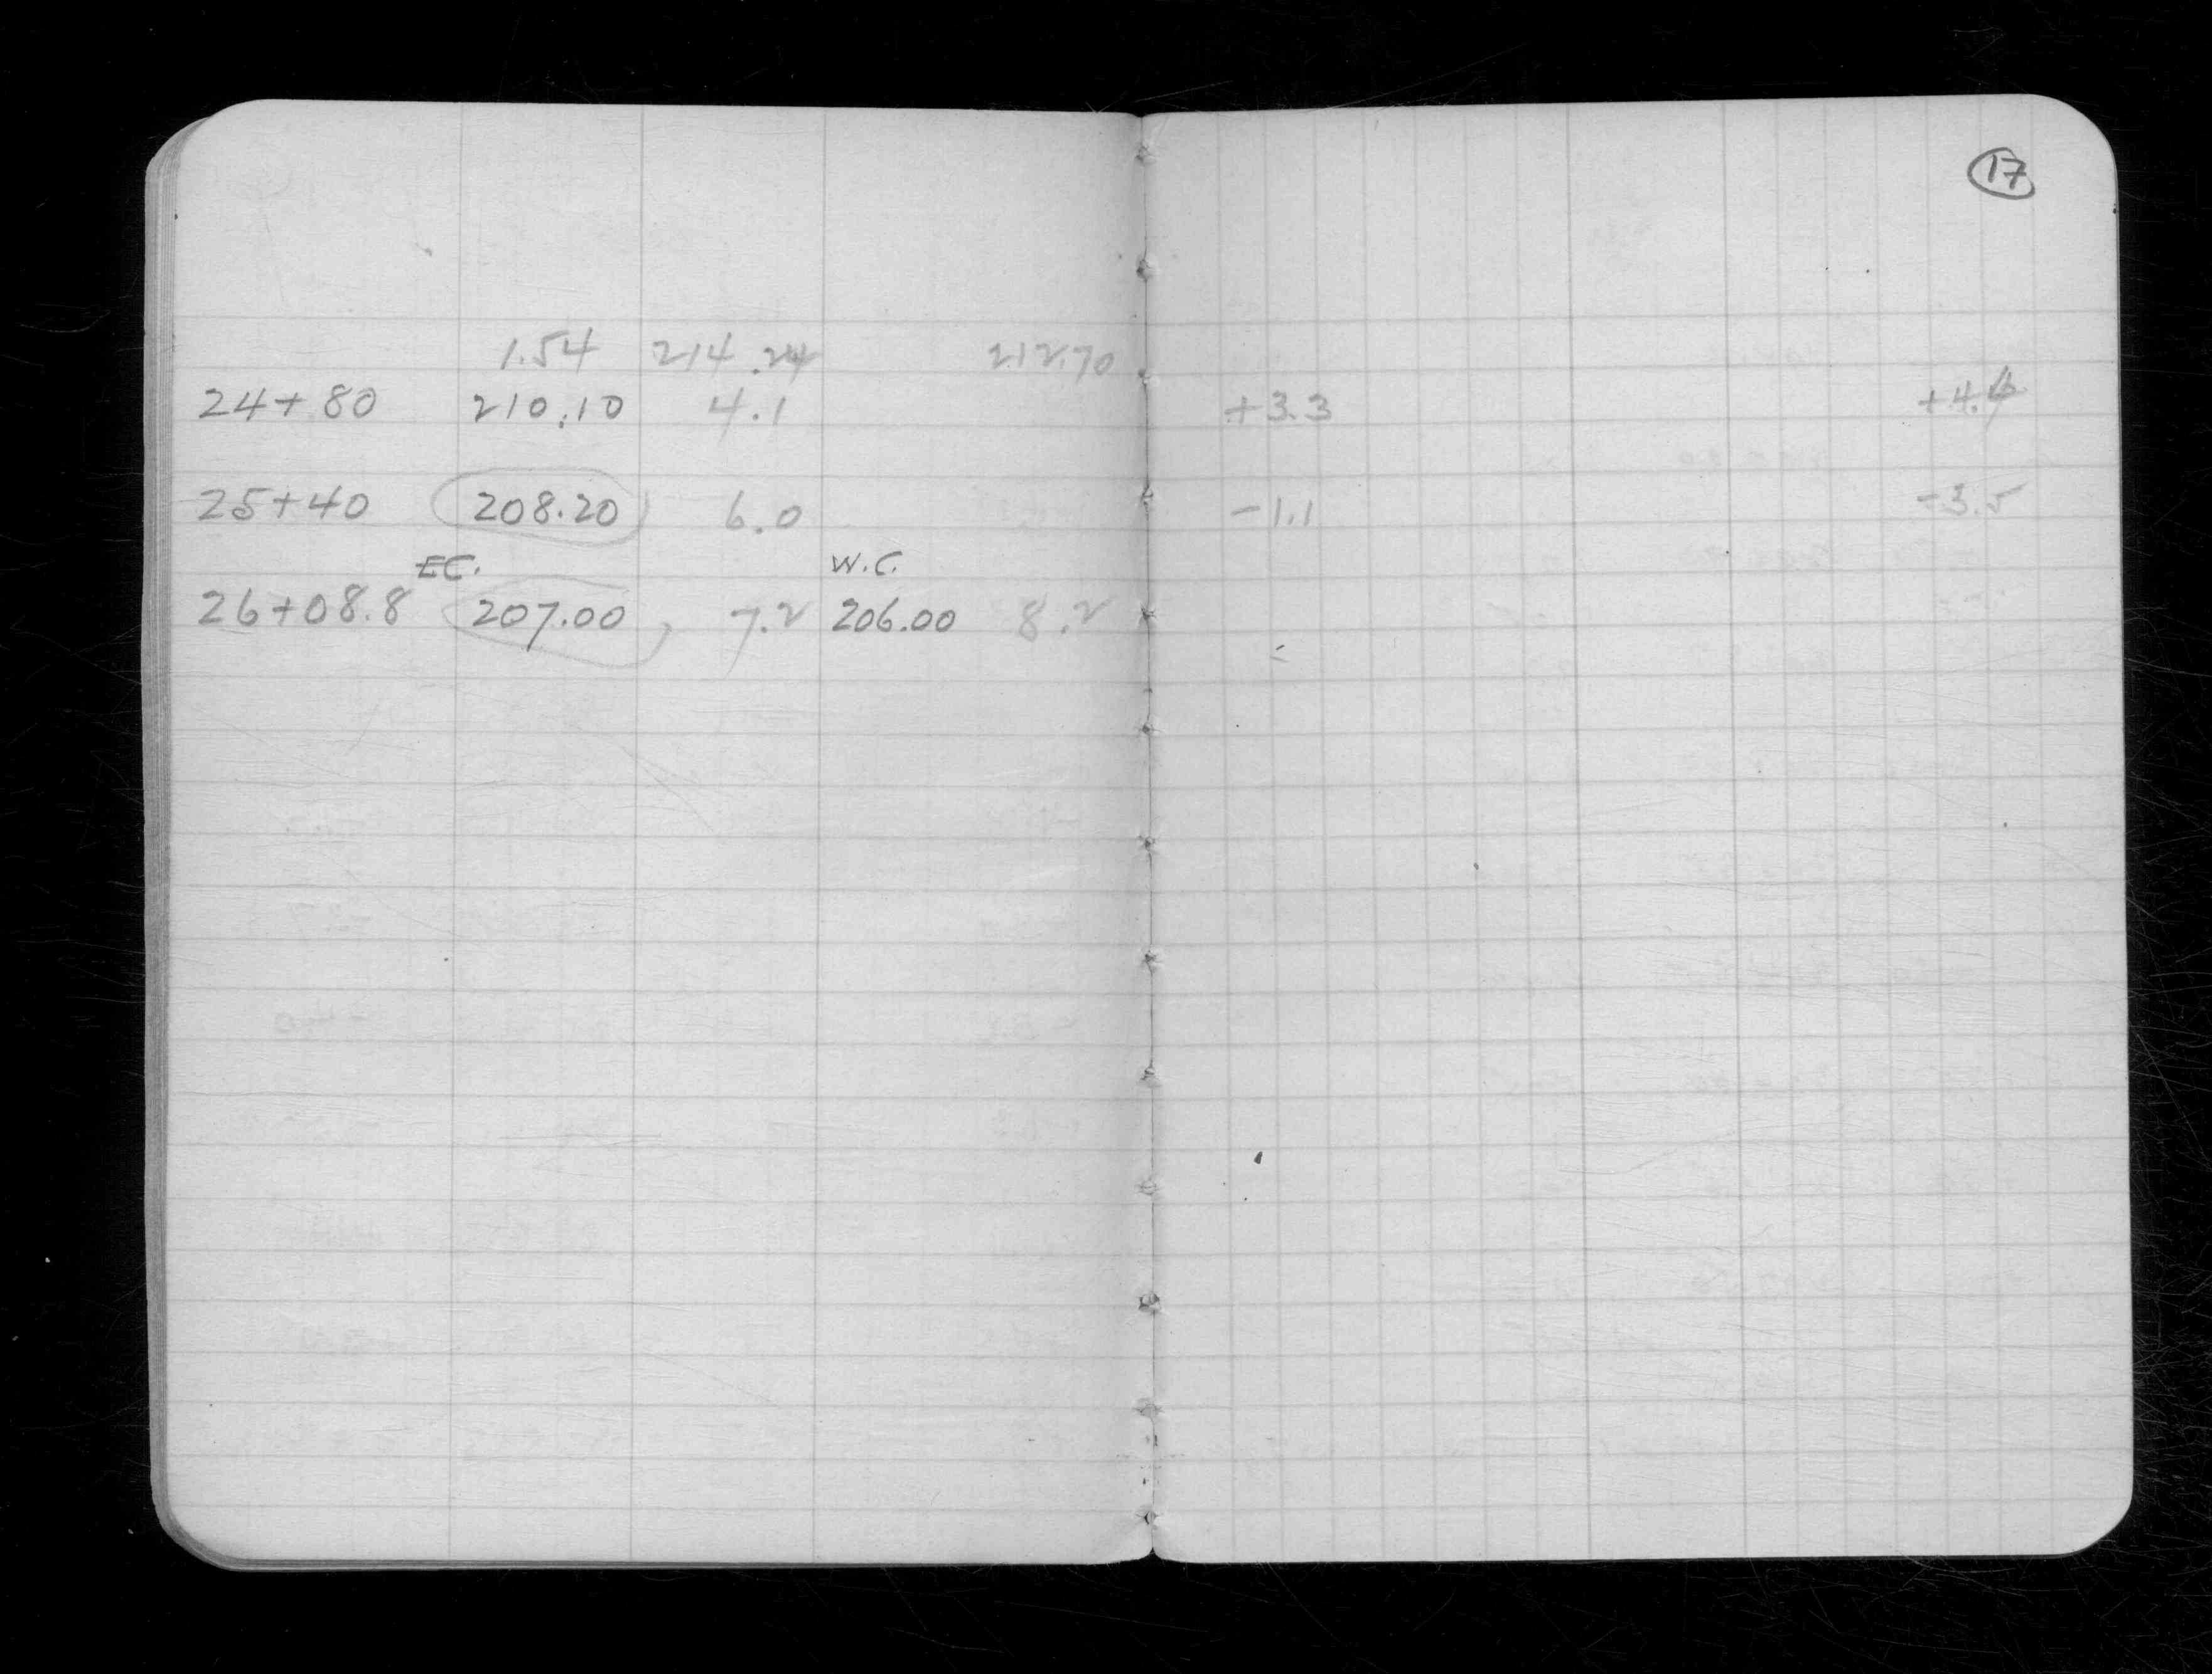 17
1.54 214.24 212.70
24+80 210.10 4.1 +3.3
25+40 208.20 6.0 -1.1 -3.5
EC. W.C.
26+08.8 207.00 7.2 206.00 8.2